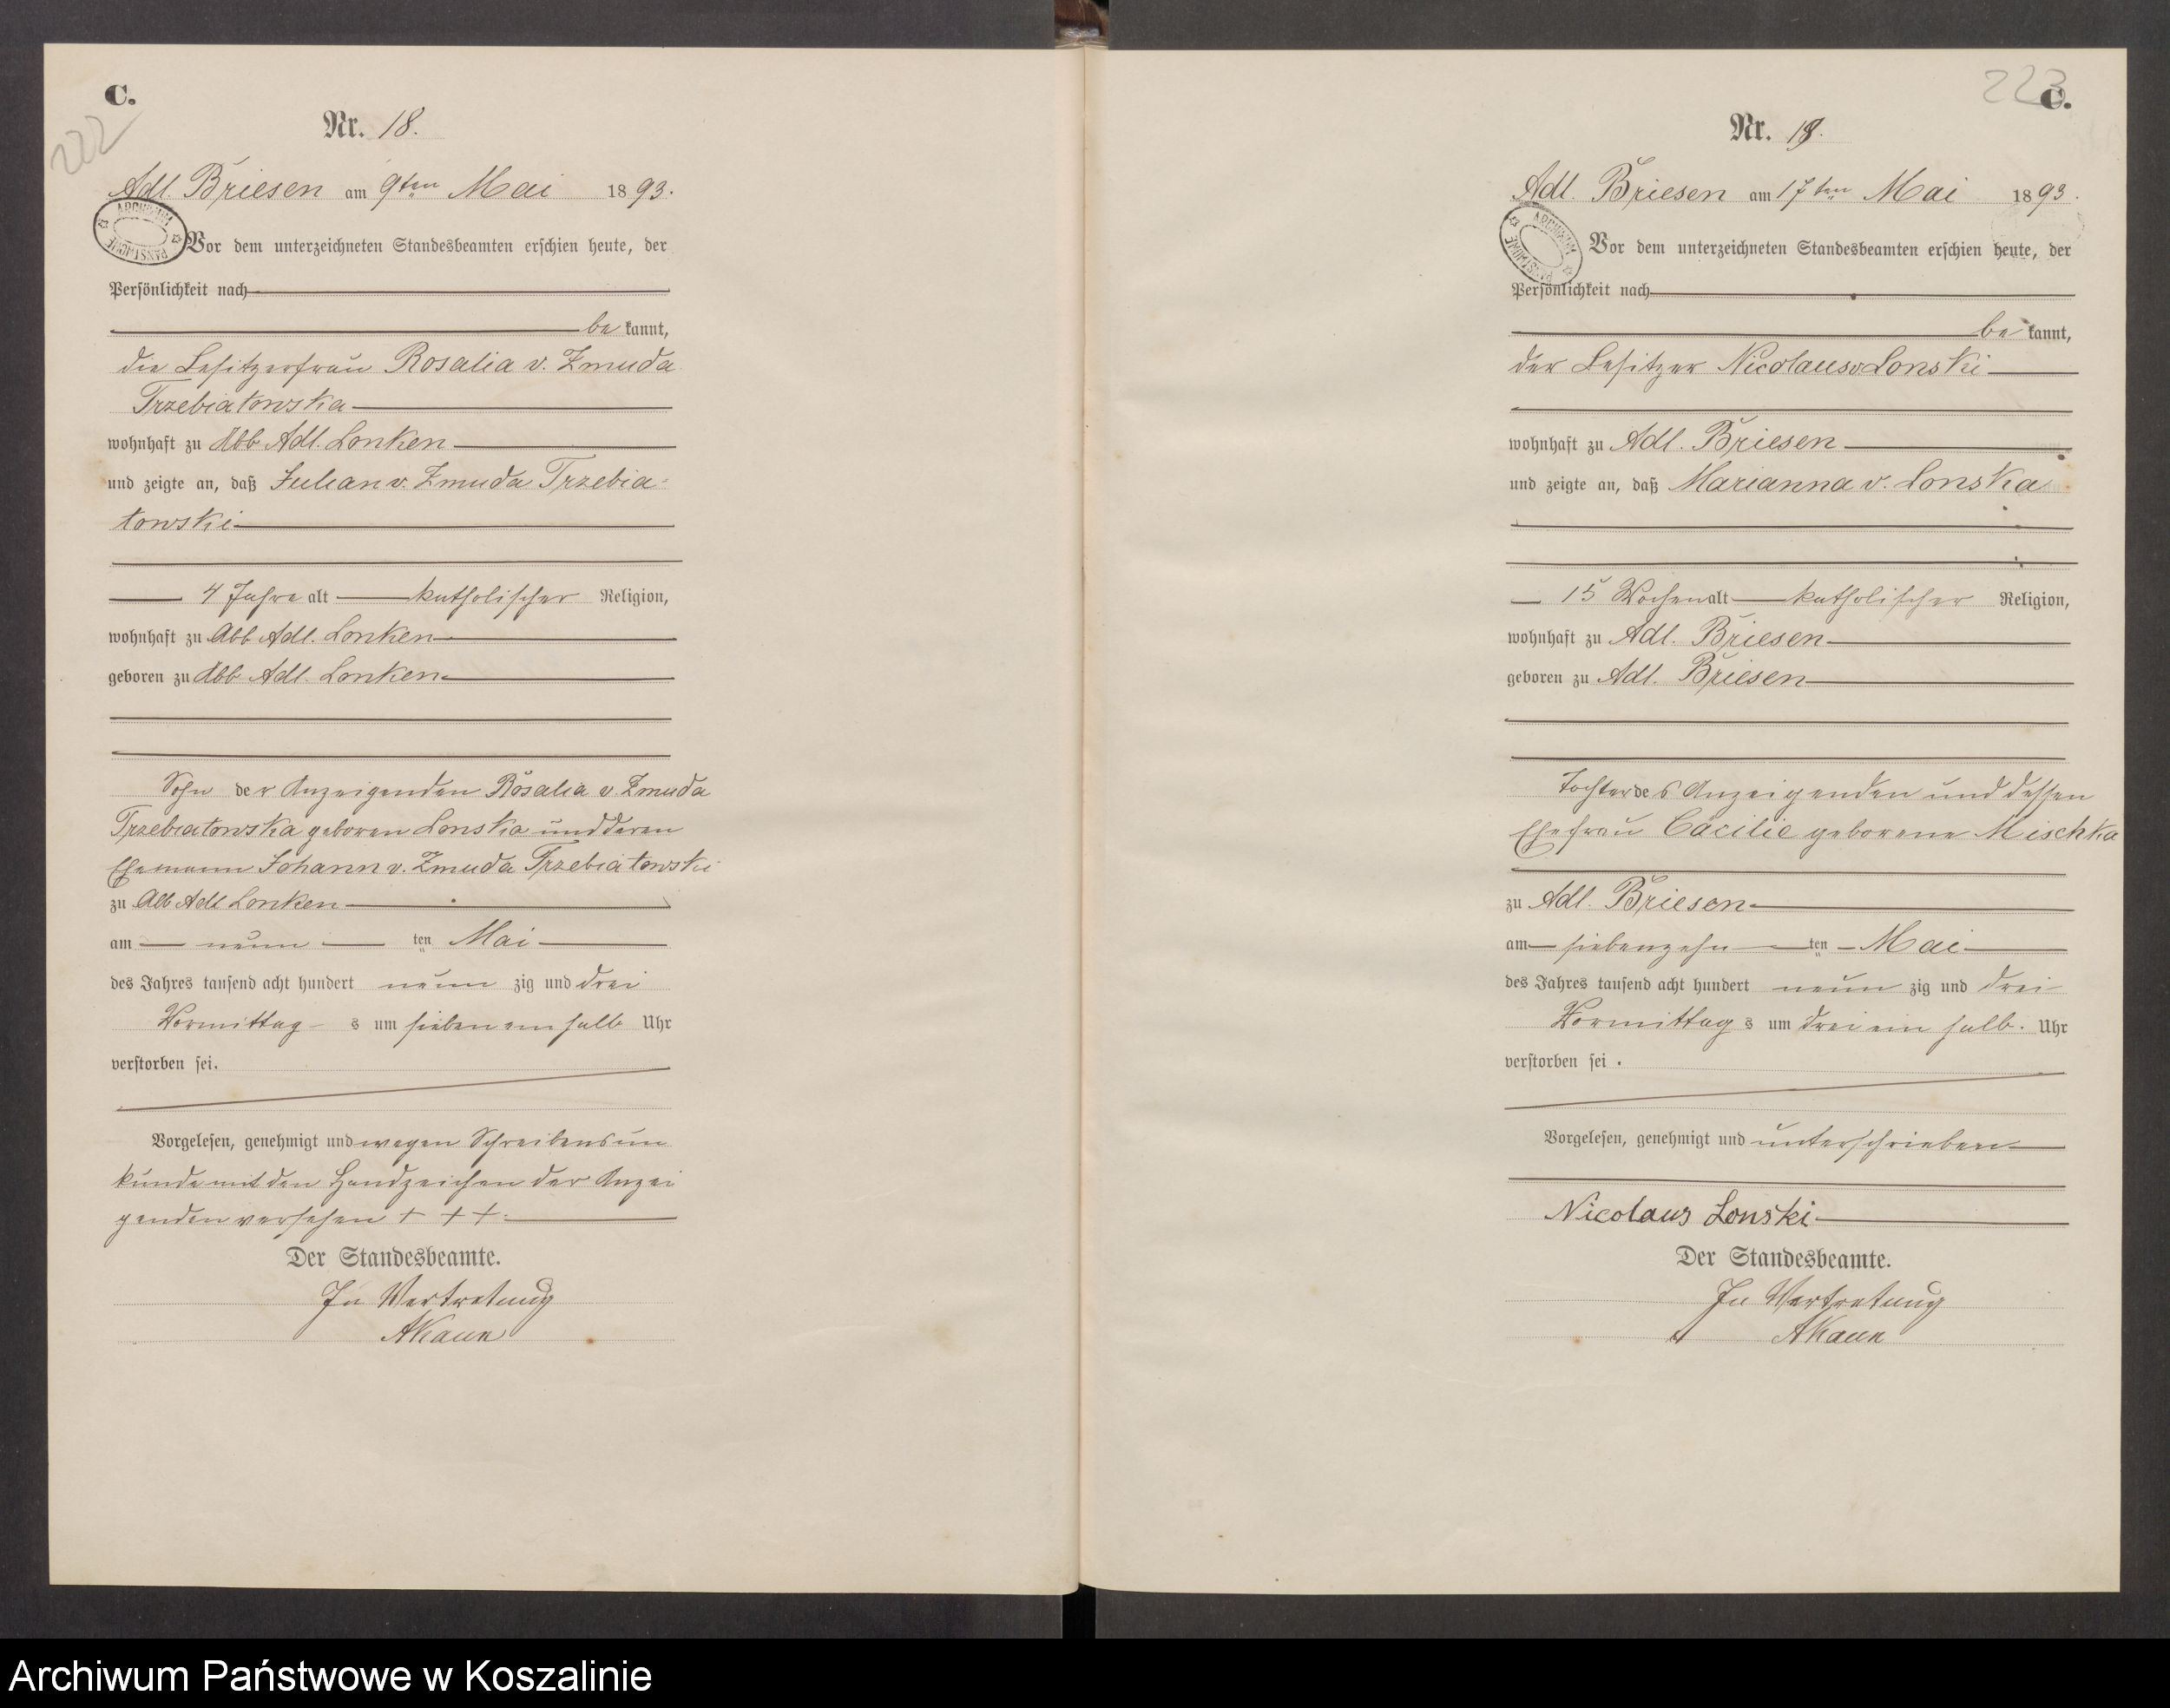 C.
222
Nr. 18.
Adl. Briesen am 9ten Mai 1893.
ARCHIWUM PAŃSTWOWE
Vor dem unterzeichneten Standesbeamten erschien heute, der
Persönlichkeit nach
be kannt,
die Besitzerfrau Rosalia v. Zmuda
Trzebiatowska
wohnhaft zu Abb Adl. Lonken
und zeigte an, daß Julian v. Zmuda Trzebia-
towski
4 Jahre alt katholischer Religion,
wohnhaft zu Abb Adl. Lonken
geboren zu Abb Adl. Lonken
Sohn der Anzeigenden Rosalia v. Zmuda
Trzebiatowska geboren Lonska und deren
Ehemann Johann v. Zmuda Trzebiatowski
zu Abb Adl Lonken
am neun ten Mai
des Jahres tausend acht hundert neun zig und drei
Vormittag s um sieben ein halb Uhr
verstorben sei.
Vorgelesen, genehmigt und wegen Schreibensun
kunde mit den Handzeichen der Anzei
genden versehen + + +.
Der Standesbeamte.
In Vertretung
AKaun
223
C.
Nr. 19.
Adl. Briesen am 17ten Mai 1893.
ARCHIWUM PAŃSTWOWE
Vor dem unterzeichneten Standesbeamten erschien heute, der
Persönlichkeit nach
be kannt,
der Besitzer Nicolaus v Lonski
wohnhaft zu Adl. Briesen
und zeigte an, daß Marianna v. Lonska
15 Wochen alt katholischer Religion,
wohnhaft zu Adl. Briesen
geboren zu Adl. Briesen
Tochter des Anzeigenden und dessen
Ehefrau Cäcilie geborene Mischka
zu Adl. Briesen
am siebenzehn ten Mai
des Jahres tausend acht hundert neun zig und drei
Vormittag s um drei ein halb. Uhr
verstorben sei.
Vorgelesen, genehmigt und unterschrieben
Nicolaus Lonski
Der Standesbeamte.
In Vertretung
AKaun
Archiwum Państwowe w Koszalinie